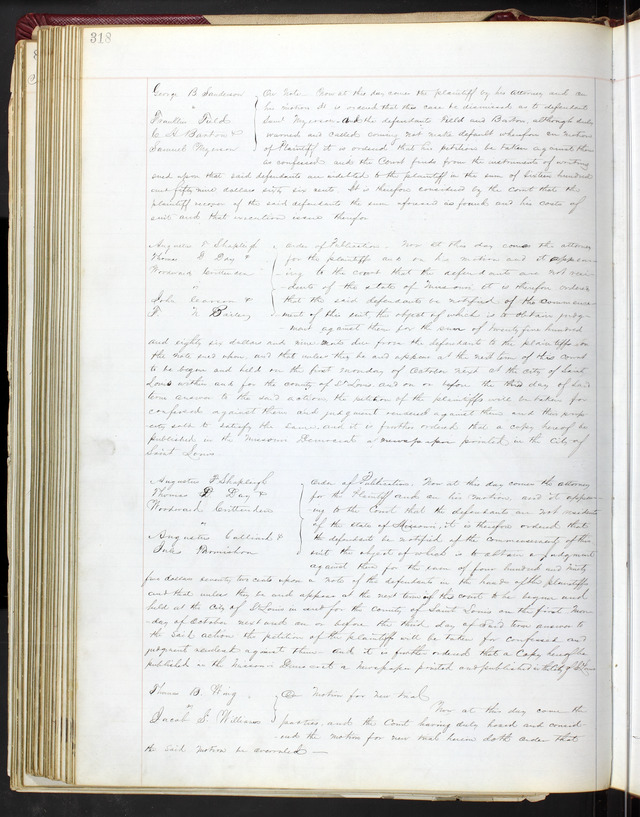 318
George B. Sanderson } On Note. Now at this day comes the plaintiff by his attorney and on
" his motion It is ordered that this case be dismissed as to defendant
Franklin Field Saml Wycoson, And the defendants Field and Barton, although duly
C. H. Barton & warned and called coming not make default wherefore on motion
Samuel of Plaintiff it is ordered that his petition be taken against them
as confessed and the Court finds from the instruments of writing
sued upon that said defendants are indebted to the plaintiff in the sum of sixteen hundred
and fifty nine dollars sixty six cents. It is therefore considered by the Court that the
plaintiff recover of the said defendants the sum aforesaid as found and his costs of
suit and that execution issue therefor
Augustus F. Shapleigh } Order of Publication. Now at this day comes the attorney
Thomas D. Day & for the plaintiffs and on his motion and it appear-
Woodward Crittenden ing to the court that the defendants are not resi-
" dents of the state of Missouri it is therefore ordered
John & that the said defendants be notified of the commence-
F. Bailey ment of this suit the object of which is to obtain judg-
ment against them for the sum of Twenty five hundred
and eighty six dollars and nine cents due from the defendants to the plaintiffs on
the note sued upon, and that unless they be and appear at the next term of this Court
to be begun and held on the first monday of October next at the city of Saint
Louis within and for the county of St Louis and on or before the third day of said
term answer to the said action the petition of the plaintiffs will be taken for
confessed against them and judgment rendered against them and their prop-
erty sold to satisfy the same, and it is further ordered that a copy hereof be
published in the Missouri Democrat a newspaper printed in the City of
Saint Louis
Augustus F. Shapleigh } Order of Publication. Now at this day comes the attorney
Thomas D. Day & for the Plaintiff and on his motion, and it appear-
Woodward Crittenden ing to the Court that the defendants are not residents
" of the state of Missouri, it is therefore ordered that
Augustus & the defendants be notified of the commencement of this
Jules suit the object of which is to obtain a judgment
against them for the sum of four hundred and ninety
five dollars seventy two cents upon a note of the defendants in the hands of the plaintiffs,
and that unless they be and appear at the next term of this court to be begun and
held at the City of St Louis in and for the County of Saint Louis on the first Mon-
day of October next and on or before the third day of said term answer to
the said action the petition of the plaintiff will be taken for confessed and
judgment rendered against them and it is further ordered that a Copy hereof be
published in the Missouri Democrat a newspaper printed and published in the City of St Louis
Thomas B. } On Motion for new trial
vs Now at this day come the
Jacob S. Williams parties, and the Court having duly heard and consid-
ered the motion for new trial herein doth order that
the said motion be overruled —